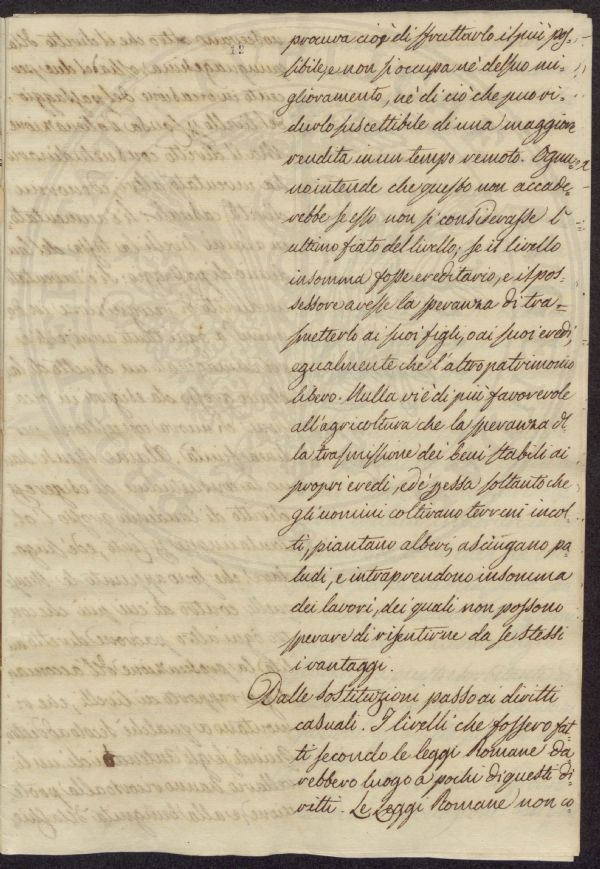 12
procura cioè di sfruttarlo il più pos-
sibile, e non si occupa nè del suo mi-
glioramento, nè di ciò che può ri-
durlo suscettibile di una maggior
rendita in un tempo remoto. Ognu-
no intende che questo non accade-
rebbe se esso non si considerasse l'
ultimo fiato del livello; se il livello
insomma fosse ereditario, e il pos-
sessore avesse la speranza di tra-
smetterlo ai suoi figli, o ai suoi eredi,
egualmente che l'altro patrimonio
libero. Nulla vi è di più favorevole
all'agricoltura che la speranza del-
la trasmissione dei beni stabili ai
propri eredi, ed è per essa soltanto che
gli uomini coltivano terreni incol-
ti, piantano alberi, asciugano pa-
ludi, e intraprendono insomma
dei lavori, dei quali non possono
sperare di risentirne da se stessi
i vantaggi.
Dalle sostituzioni passo ai diritti
casuali. I livelli che fossero fat-
ti secondo le leggi Romane da-
rebbero luogo a pochi di questi di-
ritti. Le Leggi Romane non co-